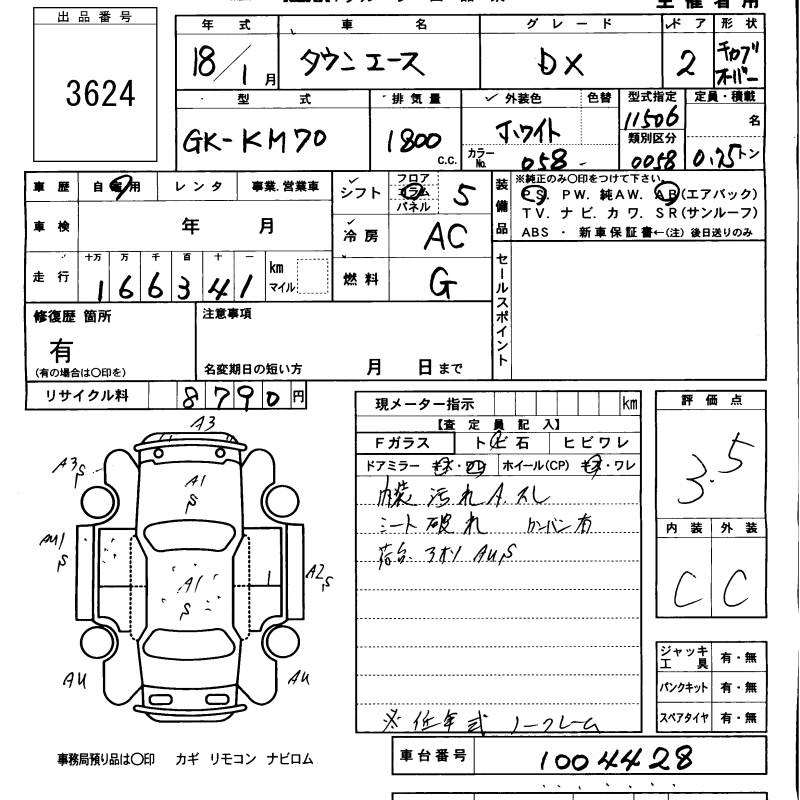 主催者用
出品番号
3624
年式 車名 グレード ドア 形状
18/1月 タウンエース DX 2
型式 排気量 外装色 色替 型式指定 定員・積載
GK-KM70 1800 C.C. ホワイト 11506 名
カラーNo. 058 類別区分 0058 0.75トン
車歴 自家用 レンタ 事業.営業車
車検 年 月
走行 十万 万 千 百 十 一
166341 km マイル
シフト フロア コラム パネル 5
冷房 AC
燃料 G
装備品
※純正のみ〇印をつけて下さい。
PS. PW. 純AW. AB(エアバック)
TV. ナビ. カワ. SR(サンルーフ)
ABS ・ 新車保証書←(注) 後日送りのみ
セールスポイント
修復歴 箇所
有
(有の場合は〇印を)
注意事項
名変期日の短い方 月 日まで
リサイクル料 8790円
A3
A3 S
A1 S
AU1 S
A1 S
A2 S
AU
AU
事務局預り品は〇印 カギ リモコン ナビロム
現メーター指示 km
【査定員記入】
Fガラス トビ石 ヒビワレ
ドアミラー キズ・ワレ ホイール(CP) キズ・ワレ
内装 汚れ A.スレ
シート 破れ カンバン有
荷台. AUS
※ 低年式 ノークレーム
評価点
3.5
内装 外装
C C
ジャッキ工具 有・無
パンクキット 有・無
スペアタイヤ 有・無
車台番号 1004428